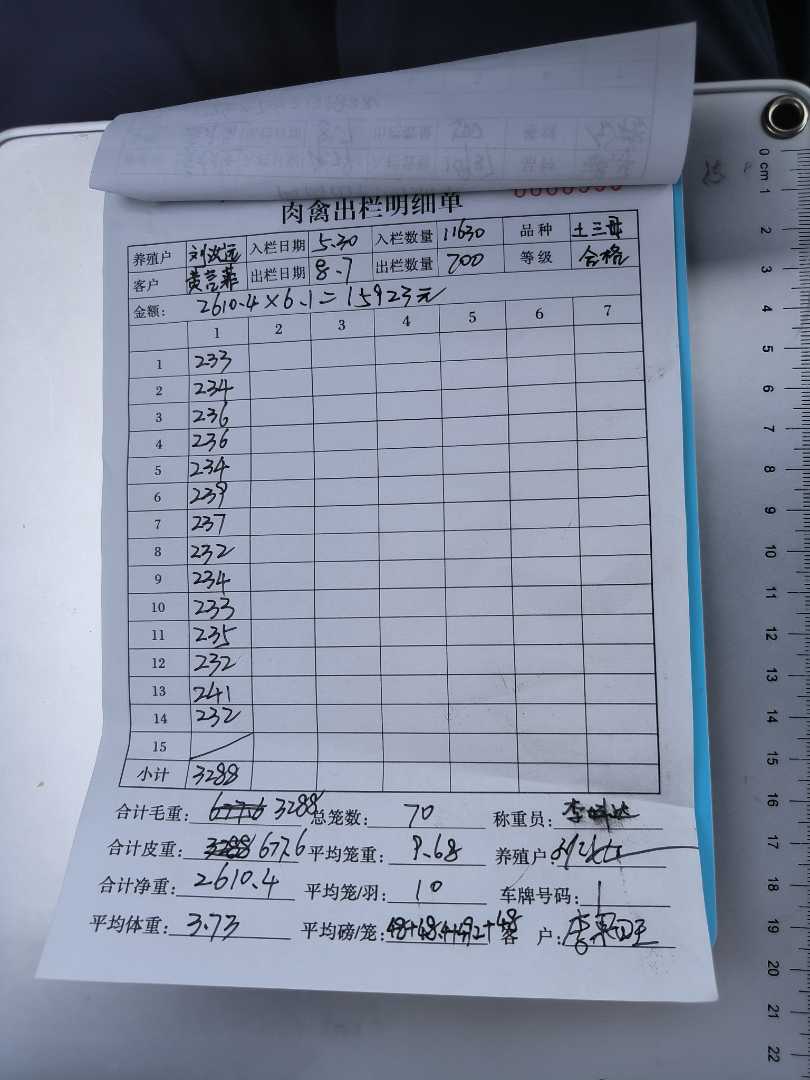 肉禽出栏明细单
养殖户 入栏日期 5.30 入栏数量 11630 品种 土三母
客户 出栏日期 8.7 出栏数量 700 等级 合格
金额: 2610.4×6.1=15923元
1 2 3 4 5 6 7
1 233
2 234
3 236
4 236
5 234
6 239
7 237
8 232
9 234
10 233
11 235
12 232
13 241
14 232
15
小计 3288
合计毛重: 677.6 3288 总笼数: 70 称重员:
合计皮重: 3288 677.6 平均笼重: 9.68 养殖户:
合计净重: 2610.4 平均笼/羽: 10 车牌号码:
平均体重: 3.73 平均磅/笼: 48+48.4+49.2+48 客 户:
0 cm 1 2 3 4 5 6 7 8 9 10 11 12 13 14 15 16 17 18 19 20 21 22